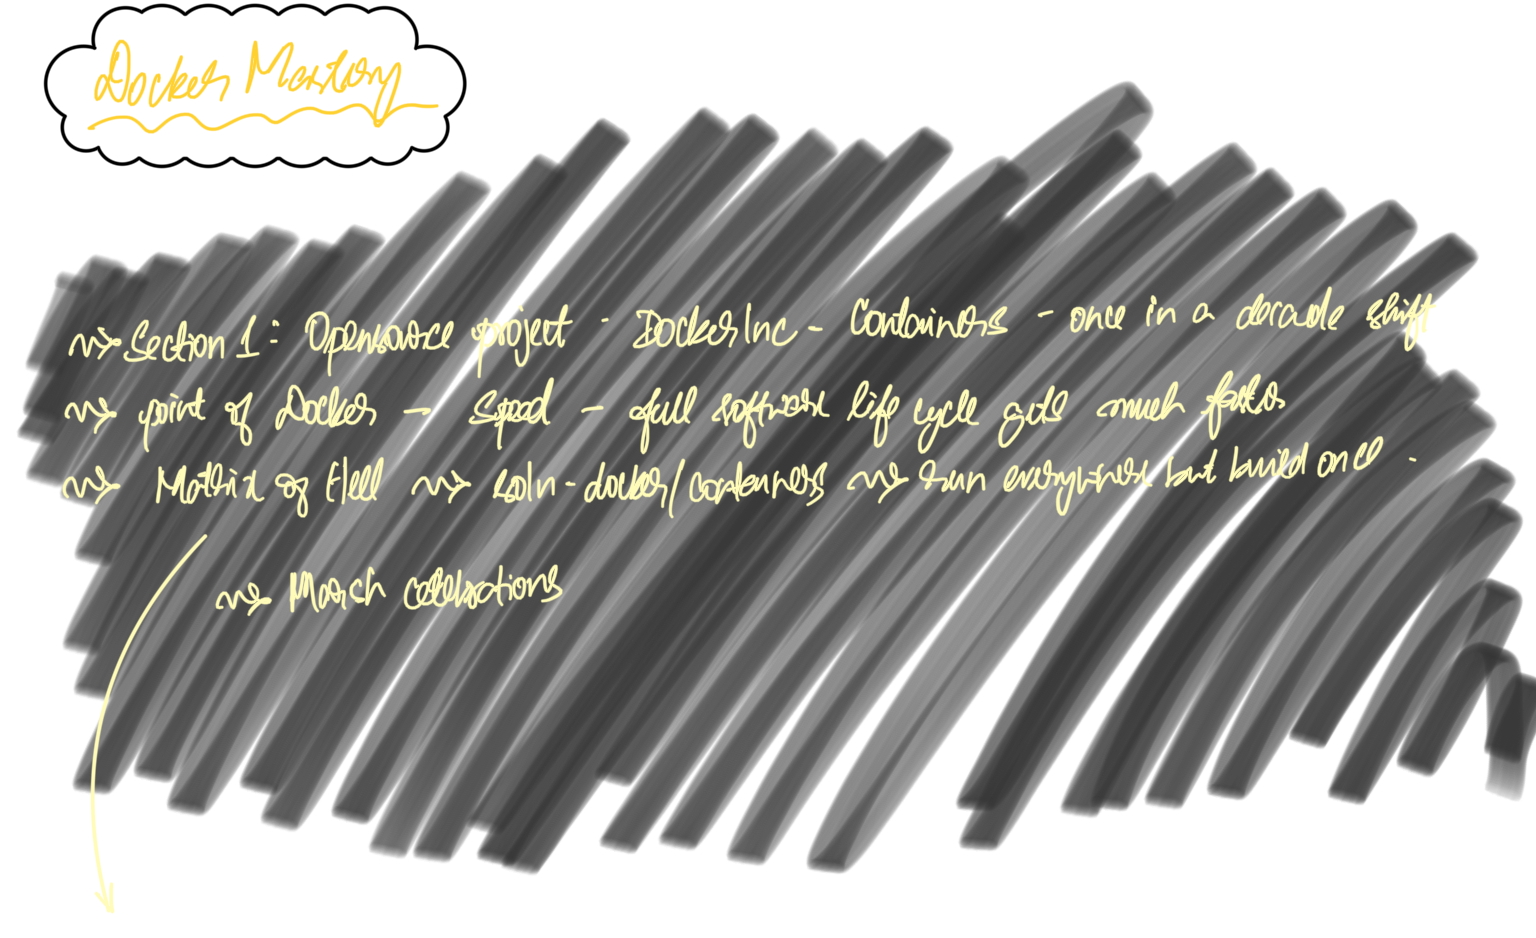 Docker Mastery
Section 1: Opensource project - Docker Inc - Containers - once in a decade shift
point of Docker - Speed - full software life cycle gets much faster
Matrix of Hell soln - docker/containers run everywhere but build once -
March celebrations